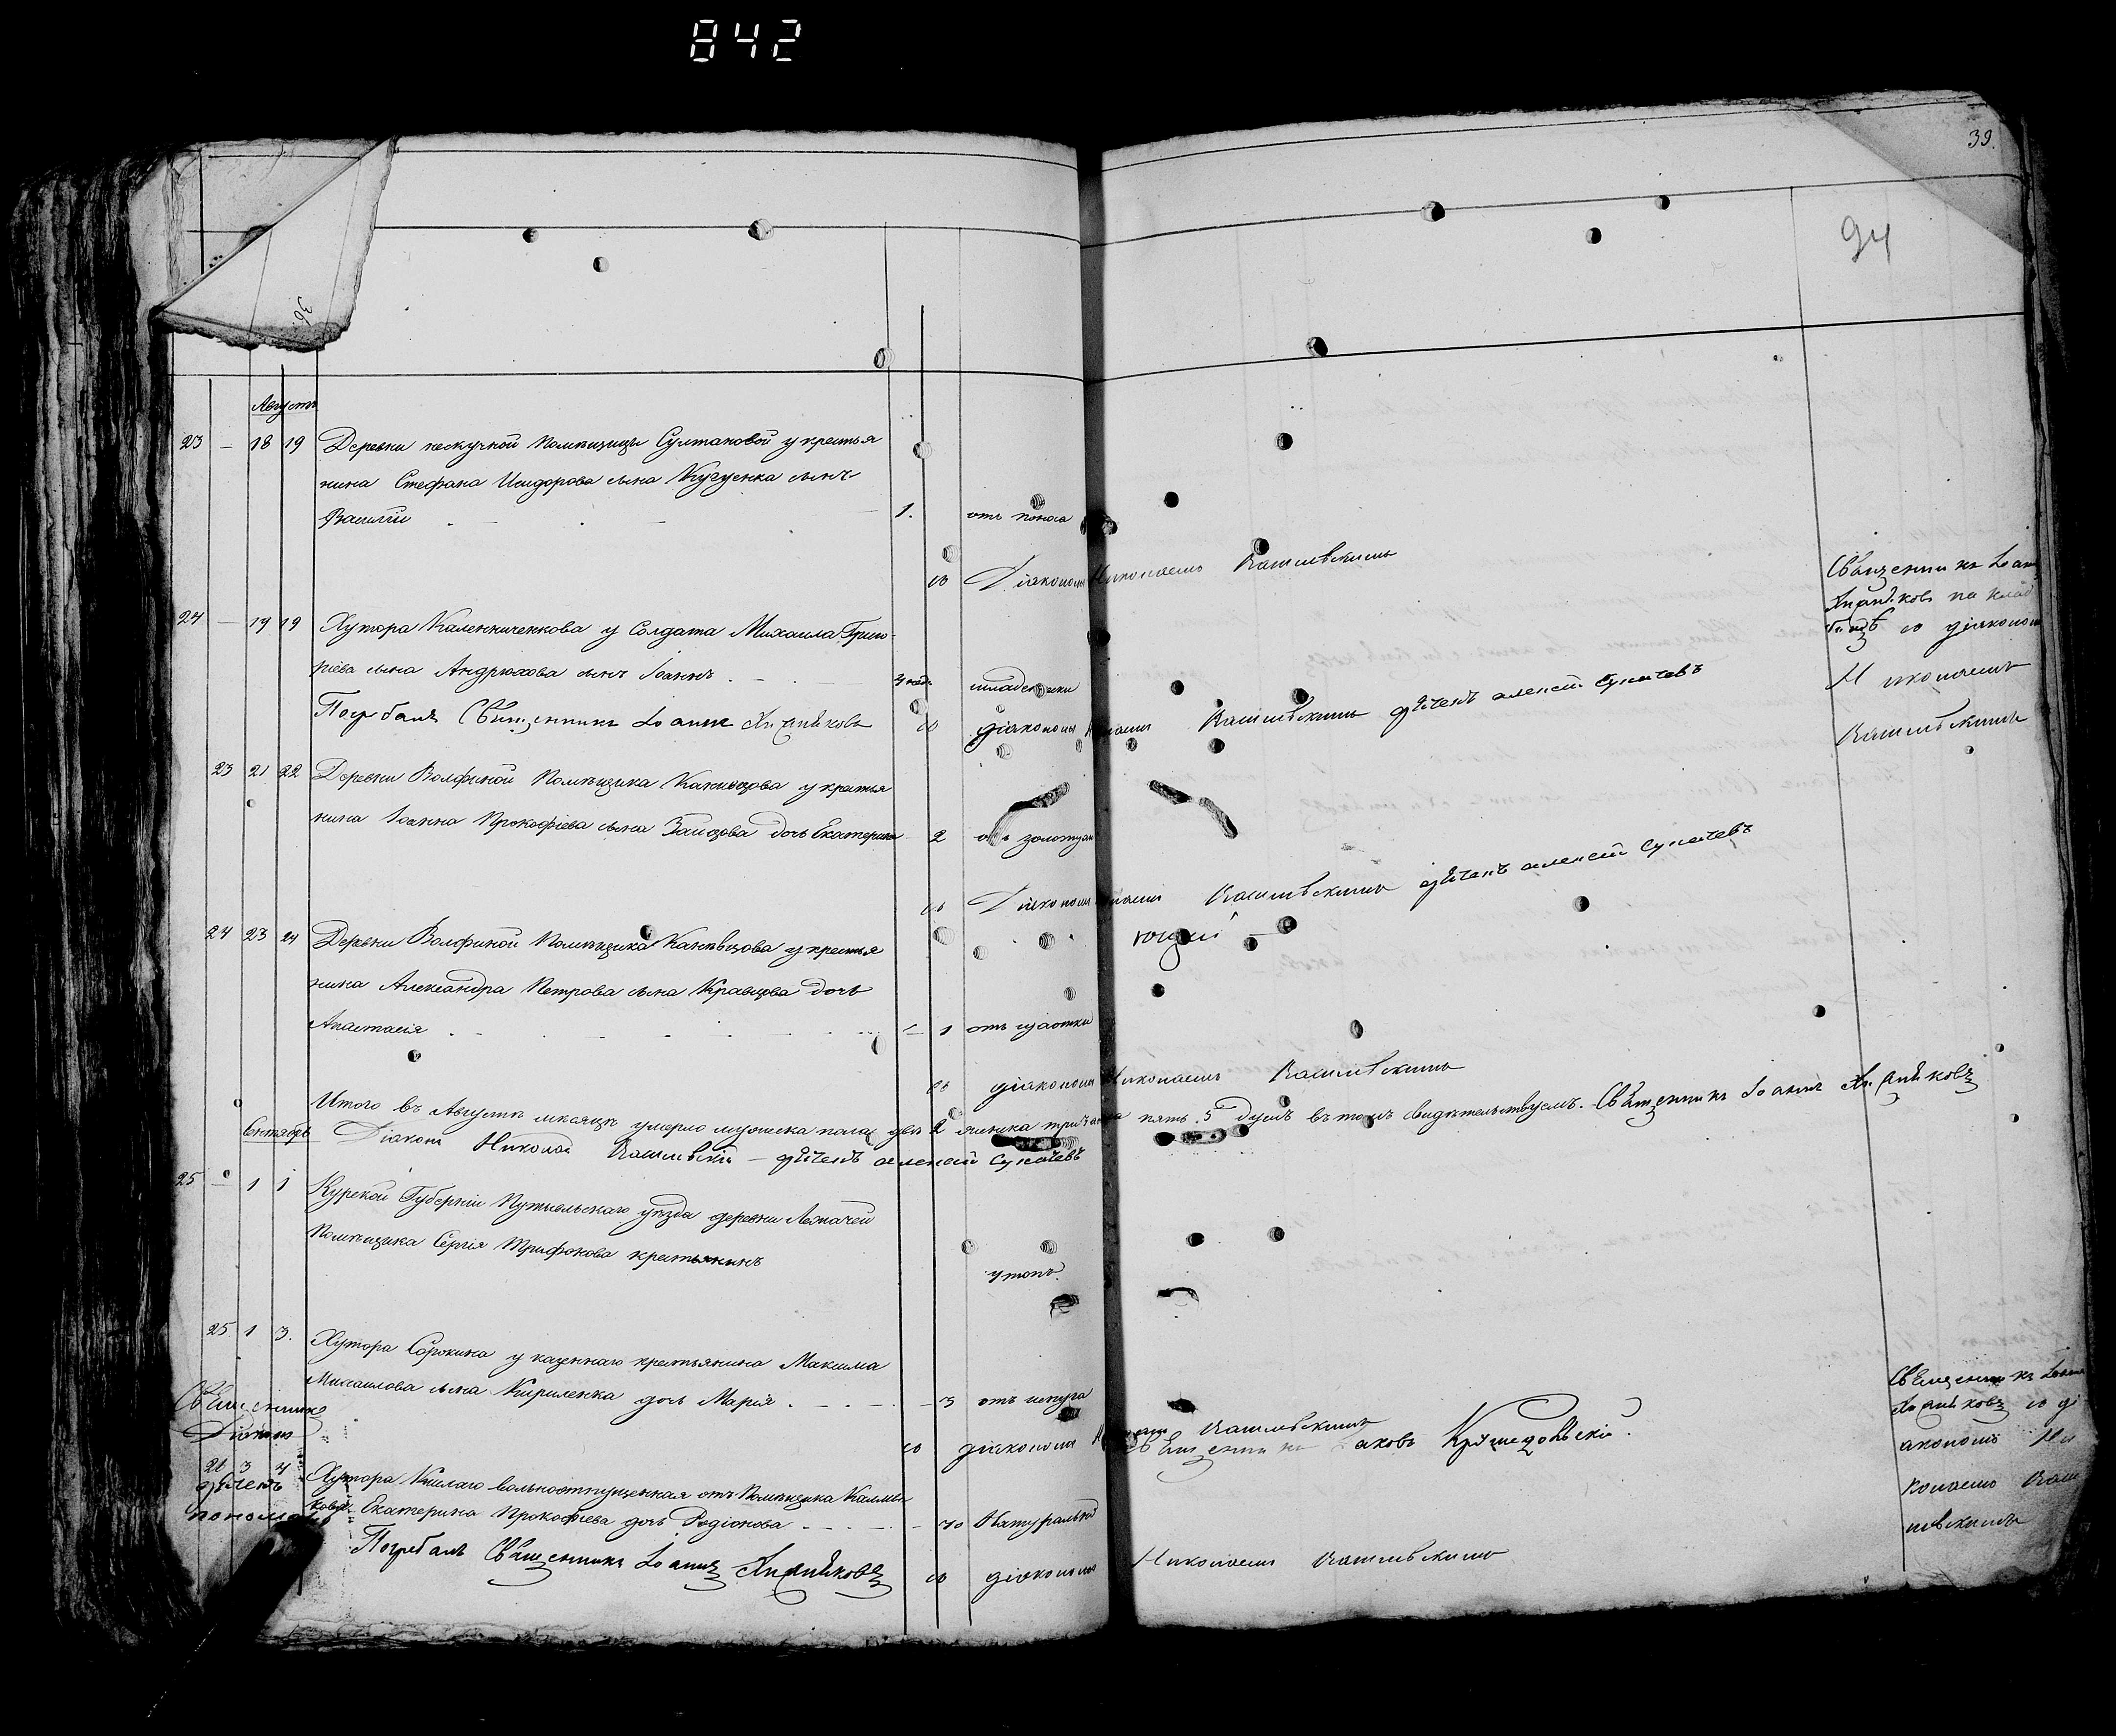 842
39.
94
36.
Августъ
23 — 18 19 Деревни нескучной Помѣщицы Султановой у крестья
нина Стефана Исидорова сына Кугуенка сынъ
Василій 1. отъ поноса
со Діакономъ Николаемъ Василевскимъ
Священникъ Іоаннъ
на клад
со діакономъ
Николаемъ
Василевскимъ
24 — 19 19 Хутора Каленниченкова у Солдата Михаила Григо
ріева сына Андрюхова сынъ Іоаннъ младенчики
Погребалъ Священникъ Іоаннъ
со діакономъ Василевскимъ дьячекъ алексей Сукачевъ
23 21 22 Деревни Волфиной Помѣщика у крестья
нина Іоанна Прокофіева сына Зайцова дочь Екатерина 2 золотухи
со Діакономъ Василевскимъ дьячекъ алексей Сукачевъ
24 23 24 Деревни Волфиной Помѣщика у крестья
нина Александра Петрова сына Кравцова дочь
Анастасія 1 отъ чахотки
со діакономъ Николаемъ Василевскимъ
Итого въ Августѣ мѣсяцѣ умерло мужеска пола два 2 женска три 3 а всего пять 5 душъ въ томъ свидѣтельствуемъ. Священникъ Іоаннъ
Сентябрь
Діаконъ Николай Василевскій — дьячекъ алексей Сукачевъ
25 — 1 1 Курской Губерніи Путивльскаго уѣзда деревни
Помѣщика Сергія Трифонова крестьянинъ
утопъ.
25 1 3. Хутора Сорокина у казеннаго крестьянина Максима
Михаилова сына Кириленка дочь Марія 3 отъ испуга
со діакономъ Василевскимъ
Священникъ
Діаконъ
Священникъ Іаковъ
Священникъ Іоаннъ
со ді
акономъ Ни
колаемъ Васи
левскимъ
26 3 4 Хутора Кислаго вольноотпущенная отъ Помѣщика
дьячекъ
Екатерина Прокофіева дочь Родіонова 70 Натуральной
пономарь
Погребалъ Священникъ Іоаннъ
со діакономъ Николаемъ Василевскимъ